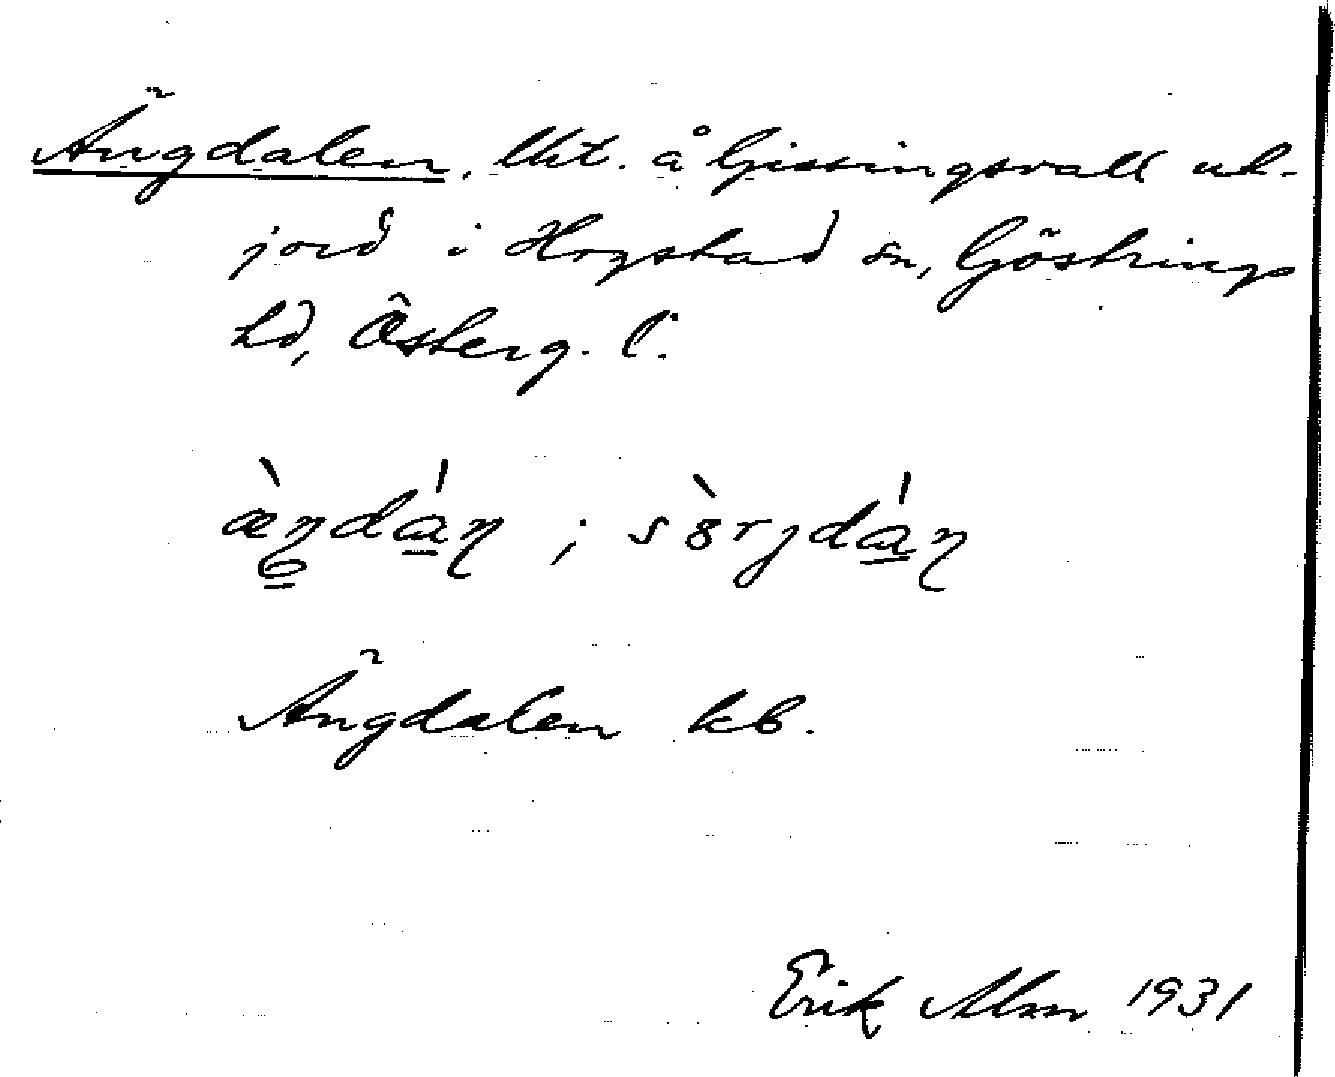 Ängdalen, lht. å Gissingsvall ut-
jord i Hogstad sn, Göstrings
hd, Österg. l.
Ängdalen kb.
Erik Alm 1931